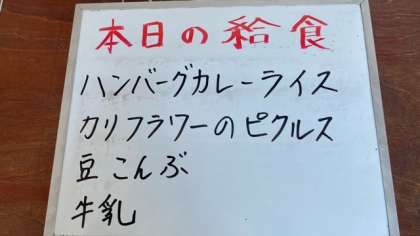 本日の給食
ハンバーグカレーライス
カリフラワーのピクルス
豆こんぶ
牛乳